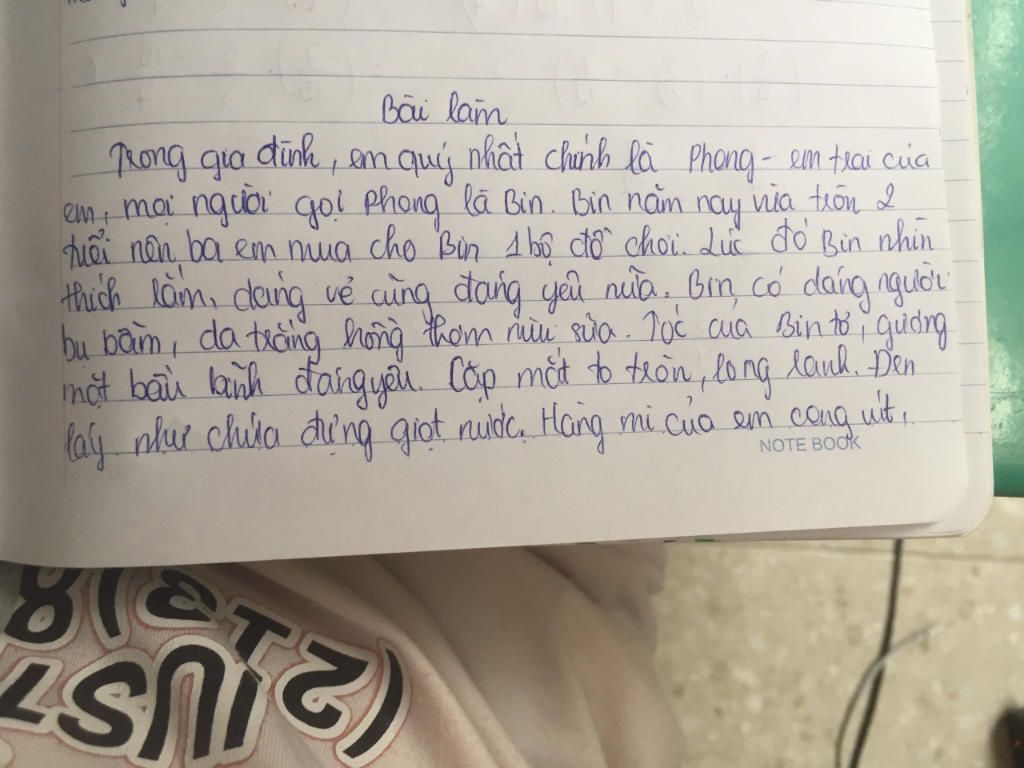 Bài làm
Trong gia đình, em quý nhất chính là Phong - em trai của
em, mọi người gọi Phong là Bin. Bin năm nay vừa tròn 2
tuổi nên ba em mua cho Bin 1 bộ đồ chơi. Lúc đó Bin nhìn
thích lắm, dáng vẻ cũng đáng yêu nữa. Bin, có dáng người
bụ bẫm, da trắng hồng thơm mùi sữa. Tóc của Bin tơ, gương
mặt bầu bĩnh đáng yêu. Cặp mắt to tròn, long lanh. Đen
láy như chứa đựng giọt nước. Hàng mi của em cong vút,
NOTE BOOK